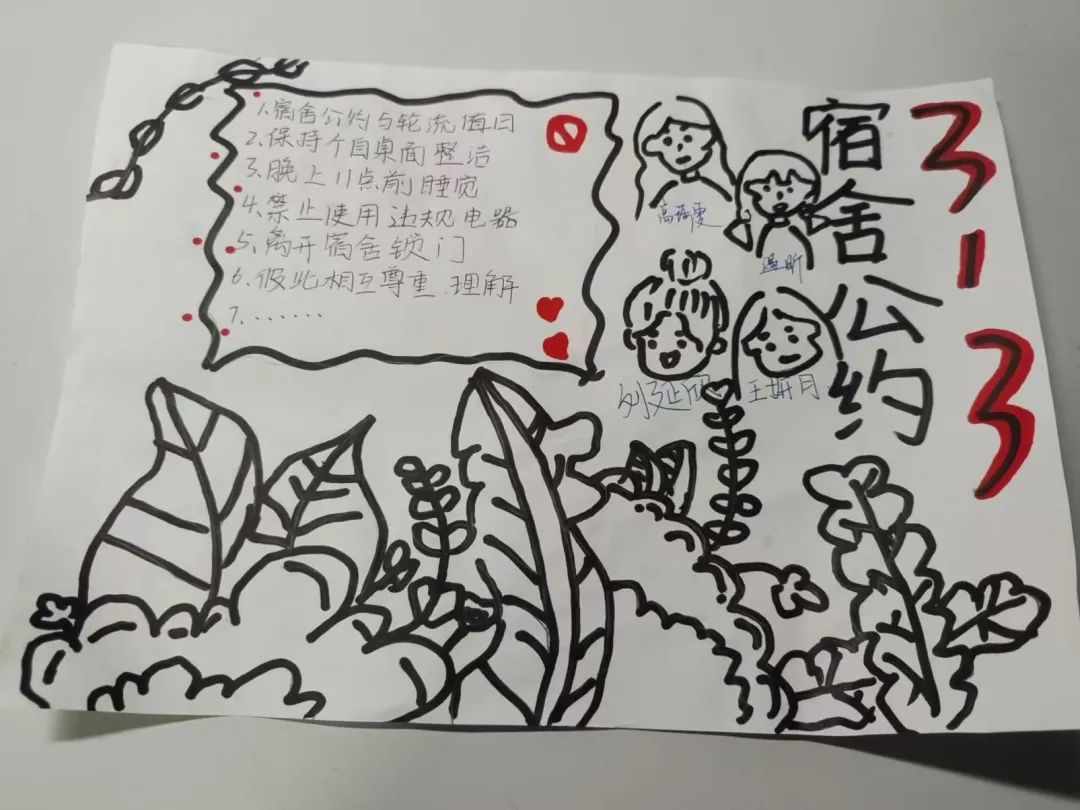 1、宿舍公约与轮流值日
2、保持个自桌面整洁
3、晚上11点前睡觉
4、禁止使用违规电器
5、离开宿舍锁门
6、彼此相互尊重、理解
7、......
宿舍公约
3-13
温昕
王妍月